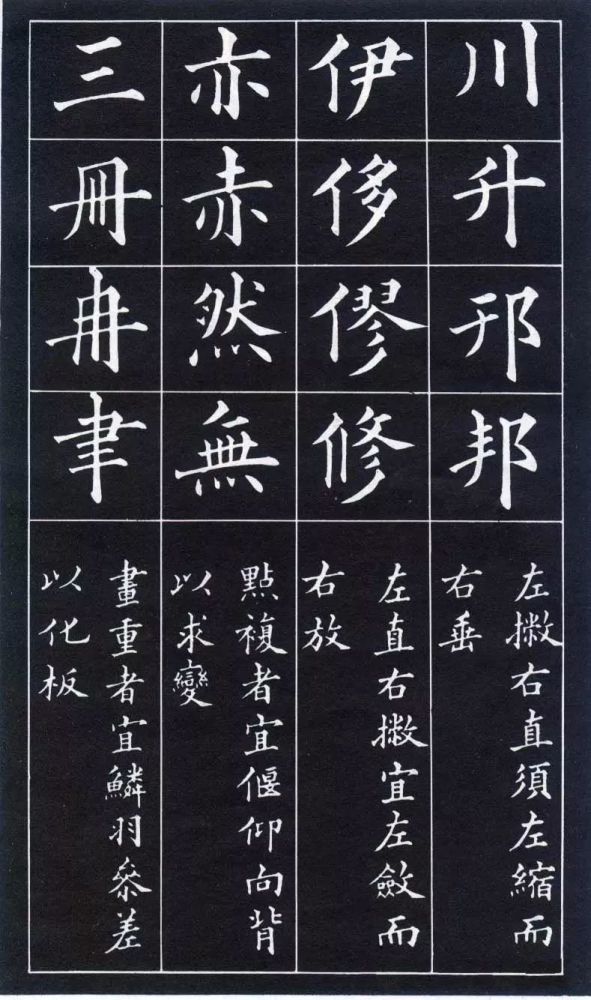 川升邢邦
左撇右直須左縮而
右垂
伊侈僇修
左直右撇宜左斂而
右放
亦赤然無
點複者宜偃仰向背
以求變
三冊冉聿
畫重者宜鱗羽參差
以化板